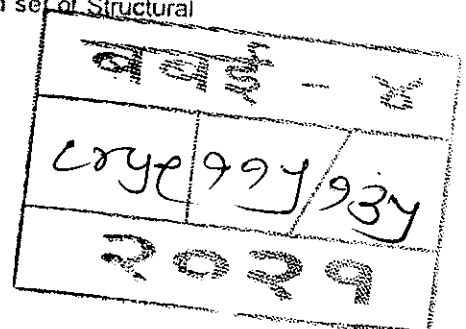 set of Structural
बवई - ४
११५ / १३५
२०२१